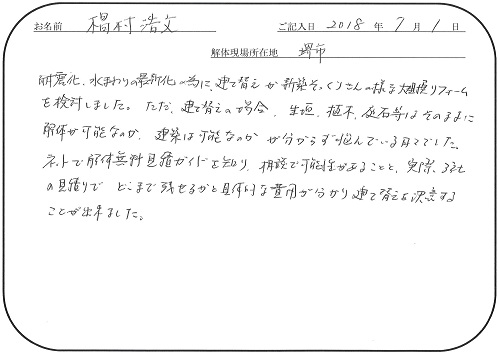 お名前 楊村 浩文 ご記入日 2018 年 7 月 1 日
解体現場所在地 堺市
耐震化、水まわりの最新化の為に、建て替えか新築そっくりさんの様な大規模リフォーム
を検討しました。ただ、建て替えの場合、生垣、植木、庭石等はそのままに
解体が可能なのか、建築は可能なのかが分からず悩んでいる日々でした。
ネットで解体無料見積ガイドを知り、相談で可能性があることと、実際、3社
の見積りで どこまで残せるかと具体的な費用が分かり建て替えを決意する
ことが出来ました。